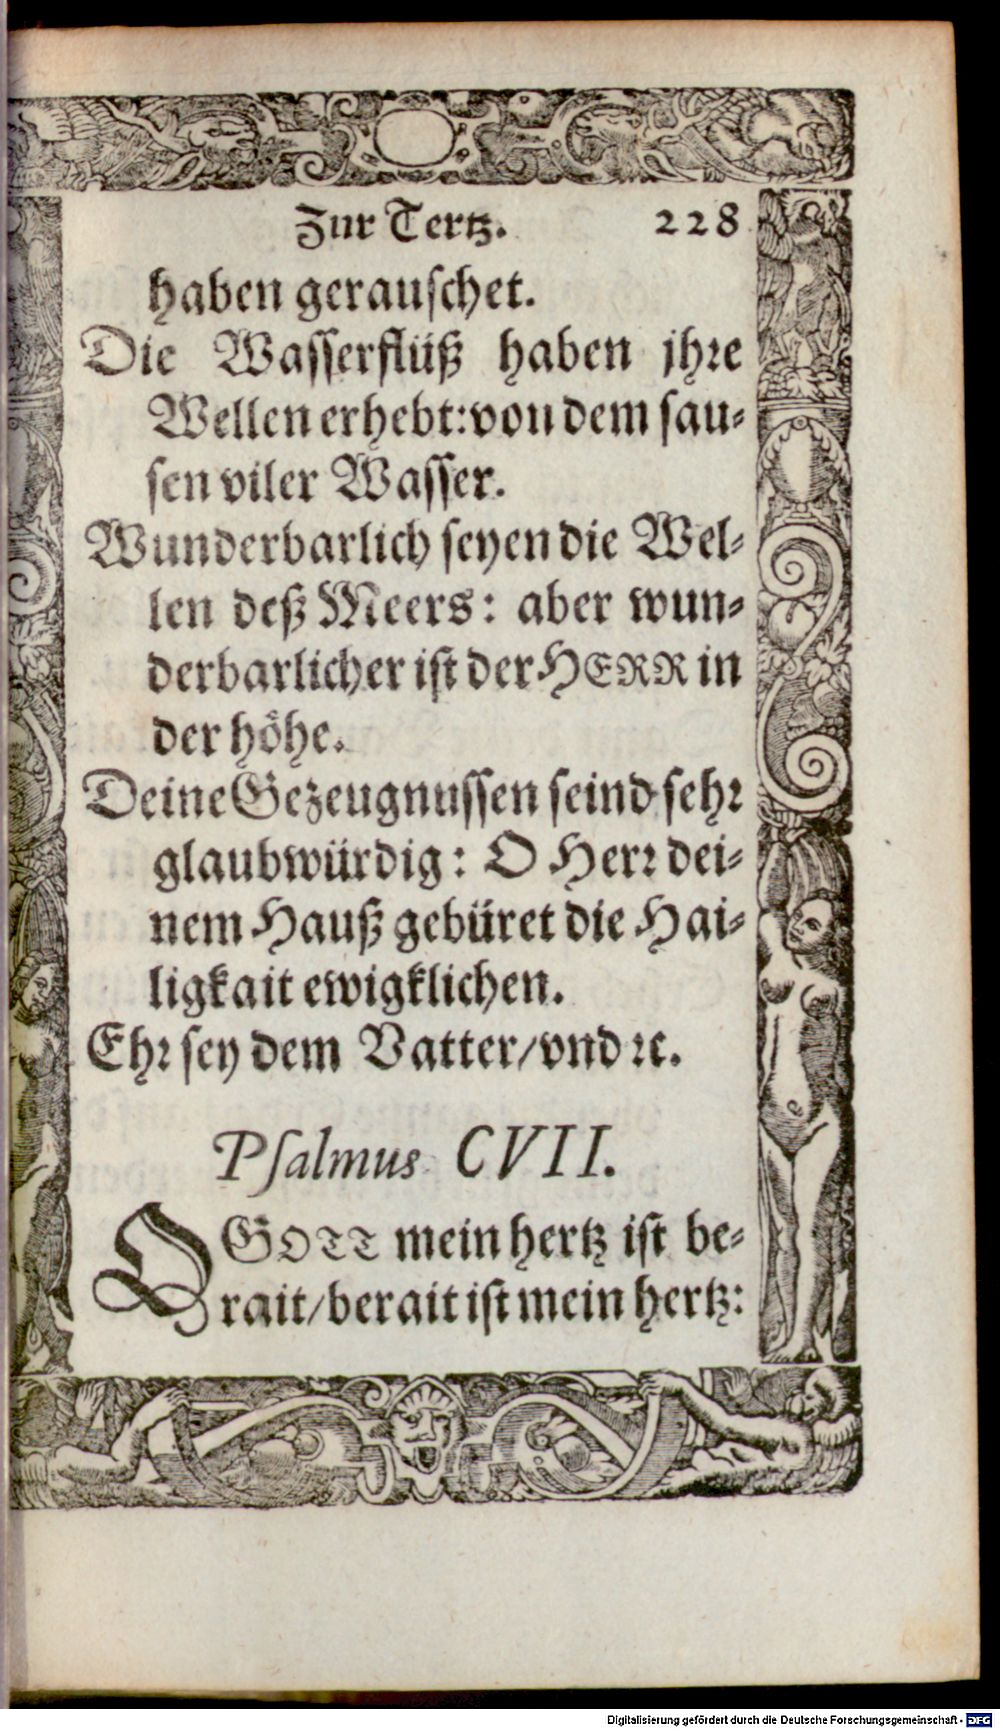 Zur Tertz. 228
haben gerauschet.
Die Wasserflüß haben jhre
Wellen erhebt: von dem sau-
sen viler Wasser.
Wunderbarlich seyen die Wel-
len deß Meers: aber wun-
derbarlicher ist der HERR in
der höhe.
Deine Gezeugnussen seind sehr
glaubwürdig: O Herr dei-
nem Hauß gebüret die Hai-
ligkait ewigklichen.
Ehr sey dem Vatter/ vnd ꝛc.
Psalmus CVII.
O GOTT mein hertz ist be-
rait/ berait ist mein hertz:
Digitalisierung gefördert durch die Deutsche Forschungsgemeinschaft - DFG